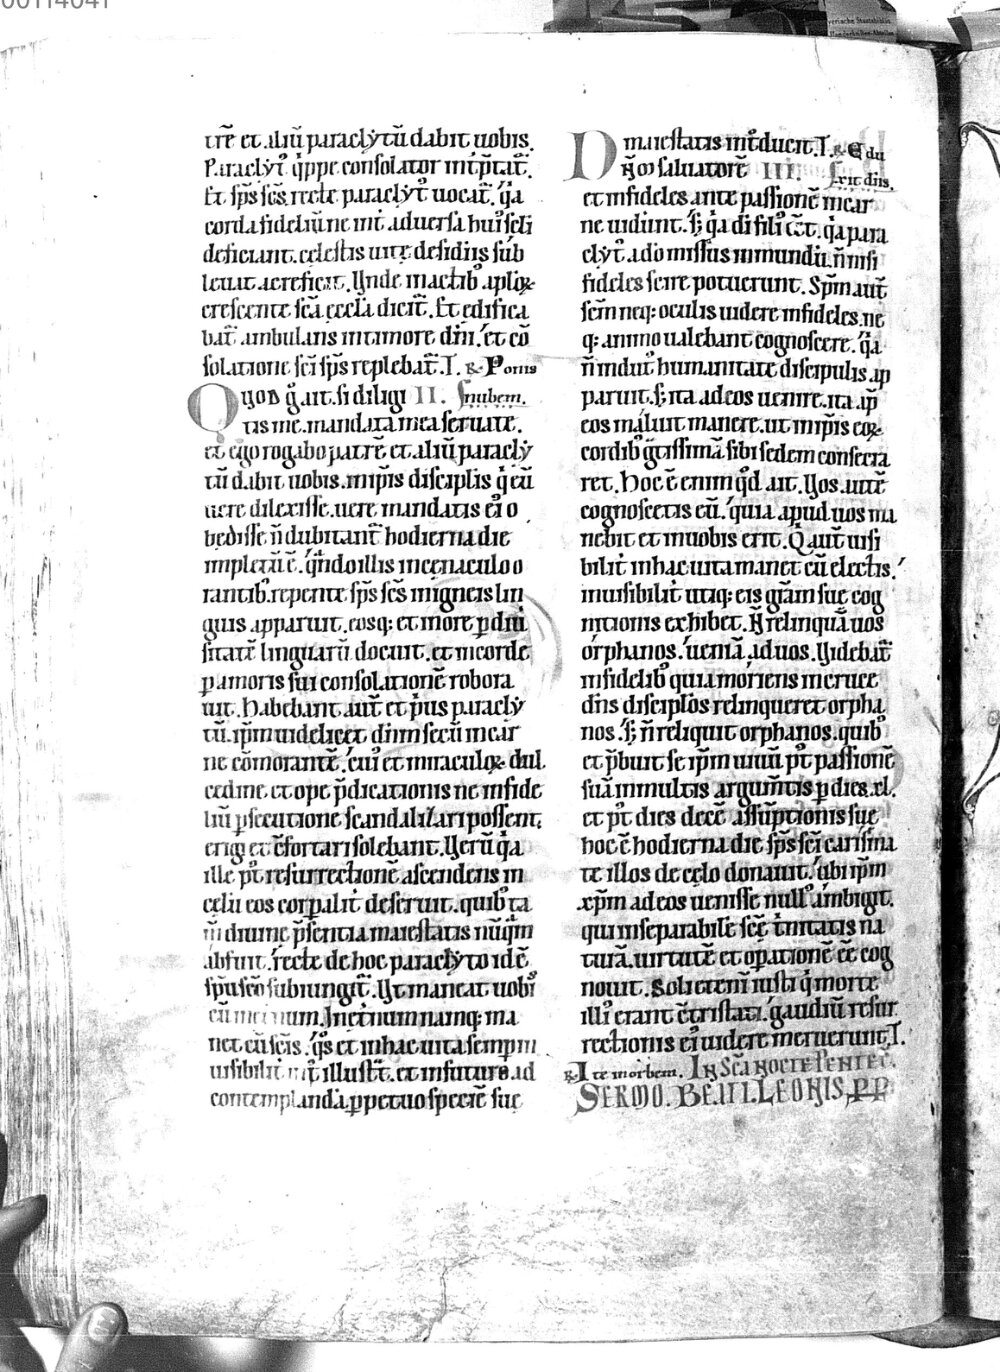 00114041
verische Staatsbiblio
Handschriften-Abteilun
tre᷑ et aliu᷑ paraclẏtu᷑ dabit uobis.
Paraclẏt᷒ q̇ppe consolator int̾p̃tat᷑.
Et sp̃s sc̃s recte paraclẏt᷒ uocat᷑. q̇a
corda fideliu᷑ ne int̾ aduersa hui᷒ seli
deficiant. celestis uite desidiis sub
leuat ac reficit. Vnde in actib᷒ aploꝝ
crescente sc̃a eccl̃a dicit᷑. Et edifica
bat᷑ ambulans in timore dñi. et co᷑
solatione sc̃i sp̃s replebat᷑. I. ꝶ Ponis
QVOD g̊ ait. si diligi II. nubem.
tis me. mandata mea seruate.
et ego rogabo patre᷑ et aliu᷑ paraclẏ
tu᷑ dabit uobis. in ip̃is disciplis q̇ eu᷑
uere dilexisse. uere mandatis ei᷒ o
bedisse ñ dubitant᷑ hodierna die
impletu᷑ e᷑. q̃ndo illis in cenaculo o
rantib᷒ repente sp̃s sc̃s in igneis lin
guis apparuit. eosq; et in ore ꝑ diui
sitate᷑ linguaru᷑ docuit. et in corde
ꝑ amoris sui consolatione᷑ robora
uit. Habebant aut᷑ et p̃us paraclẏ
tu᷑. ip̃m uidelicet dñm secu᷑ in car
ne co᷑morante᷑. cui᷒ et miraculoꝝ dul
cedine et ope p̃dicationis ne infide
liu᷑ ꝑsecutione scandalizari possent.
erigi et c᷑fortari solebant. Veru᷑ q̇a
ille p᷒t resurrectione᷑ ascendens in
celu᷑ eos corꝑalit̾ deseruit. quib᷒ ta
m̃ diuine p̃sentia maiestatis nu᷑q̃m
abfuit. recte de hoc paraclẏto id e᷑
sp̃u sc̃o subiungit᷑. Vt maneat uobis᷒
cu᷑ in et̾num. In et̾num namq; ma
net cu᷑ sc̃is. q̊s et in hac uita semp in
uisibilit̾ int᷒ illust᷑t. et in futura ad
contemplanda᷑ ꝑpetuo specie᷑ sue
D maiestatis int᷒ducit. I. ꝶ Edu
Ño᷑ saluatore᷑ III. xit dñs.
et infideles ante passione᷑ in car
ne uidunt. s; q̇a di fili᷒ e᷑et. q̇a para
clẏt᷒ a dõ missus in mundu᷑. ñ nisi
fideles scire potuerunt. Spm aut᷑
sc̃m neq; oculis uidere infideles. ne
q; animo ualebant cognoscere. q̇a
ñ indut᷒ humanitate discipulis ap
paruit. s; ita ad eos uenire. ita ap᷑
eos maluit manere. ut in ip̃is eoꝝ
cordib᷒ g̃tissima᷑ sibi sedem consecra
ret. Hoc e᷑ enim q̊d ait. Vos aute᷑
cognoscetis eu᷑. quia apud uos ma
nebit et in uobis erit. Q̇ aut᷑ uisi
bilit̾ in hac uita manet cu᷑ electis.
inuisibilit̾ utiq; eis gr̃am sue cog
nitionis exhibet. Ñ relinqua᷑ uos
orphanos. uenia᷑ ad uos. Videbat᷑
infidelib᷒ quia moriens in cruce
dñs discipl̃os relinqueret orpha
nos. S; ñ reliquit orphanos. quib᷒
et p̃buit se ip̃m uiuu᷑ p᷒t passione᷑
sua᷑ in multis argum̃tis ꝑ dies. xl.
et p᷒t dies dece᷑ assu᷑ptionis sue
hoc e᷑ hodierna die sp̃s sc̃i carisma
te illos de celo donauit. ubi ip̃m
xp̃m ad eos uenisse null᷒ ambigit.
qui inseparabile᷑ sc̃e t᷑nitatis na
tura᷑. uirtute᷑ et oꝑatione᷑ e᷑e cog
nouit. Soli eteni᷑ iusti q̇ morte
illi᷒ erant c᷑tristati. gaudiu᷑ resur
rectionis ei᷒ uidere meruerunt. I.
ꝶ I te in orbem. IN SC̃A NOCTE PENTEC̃.
SERMO. BEATI. LEONIS. PP